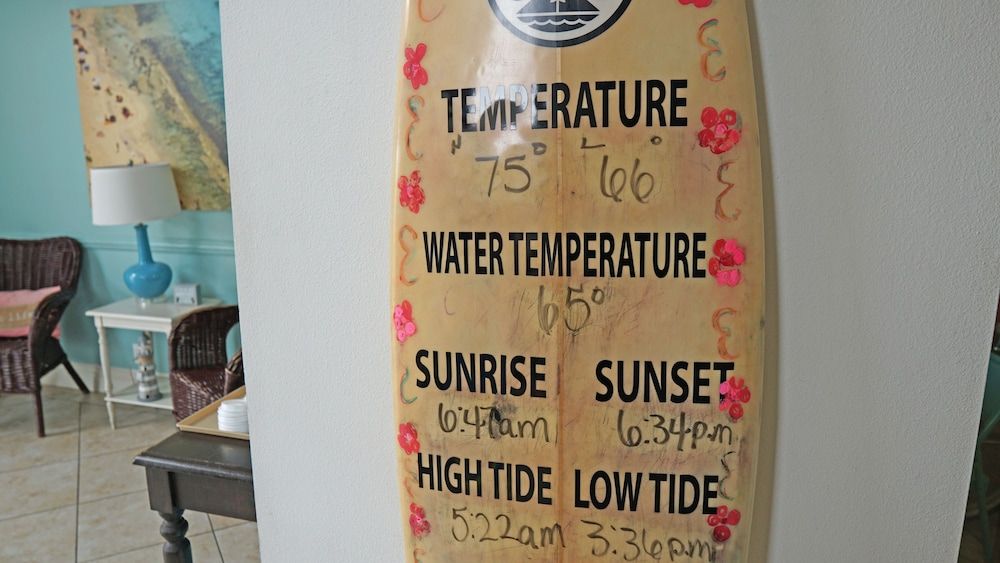 TEMPERATURE
H 75° L 66°
WATER TEMPERATURE
65°
SUNRISE SUNSET
6:47am 6:34pm
HIGH TIDE LOW TIDE
5:22am 3:36pm